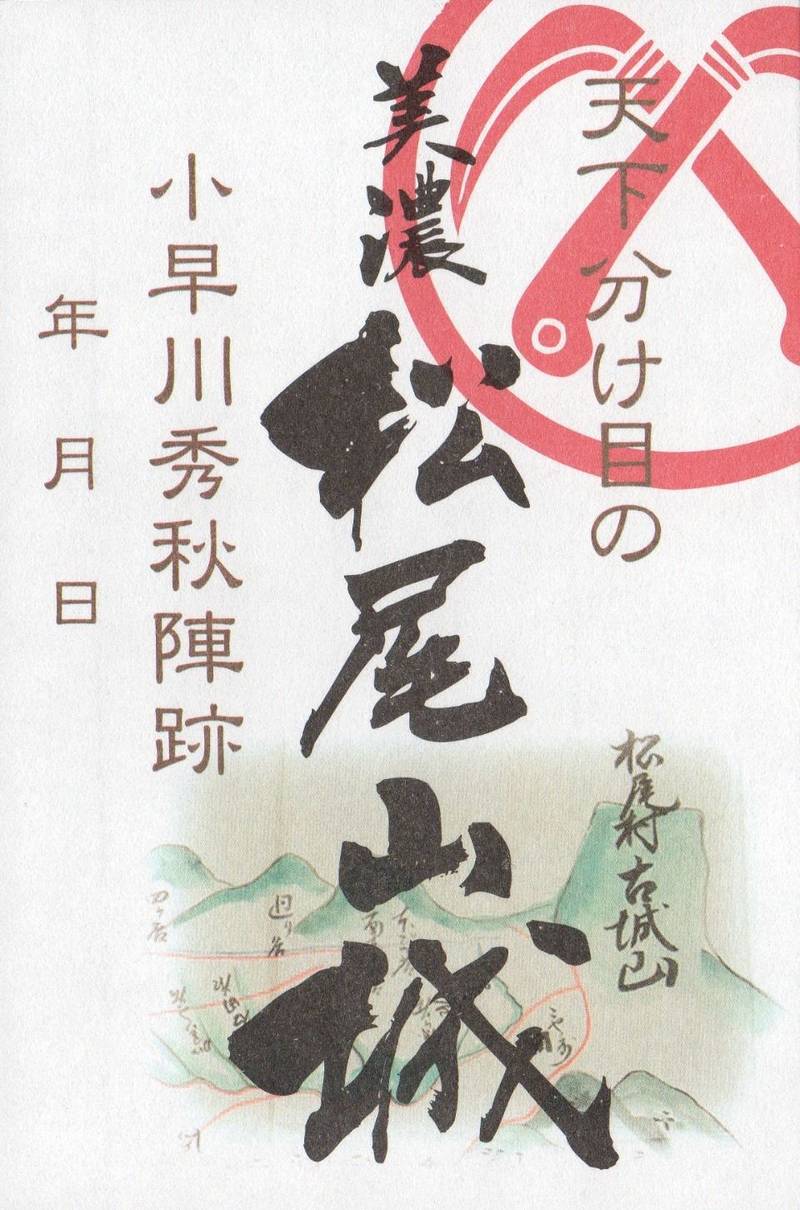 天下分け目の
美濃
松尾山城
小早川秀秋陣跡
年 月 日
松尾村古城山